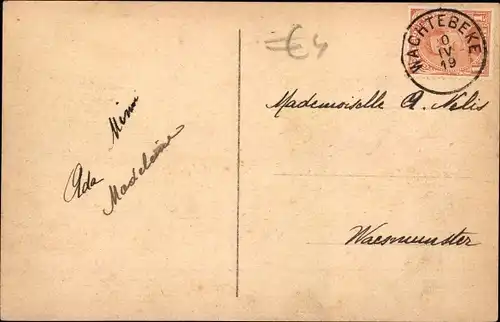 WACHTEBEKE
IV
19
€4
Mademoiselle A. Nelis
Waesmunster
Mimi
Ada
Madeleine